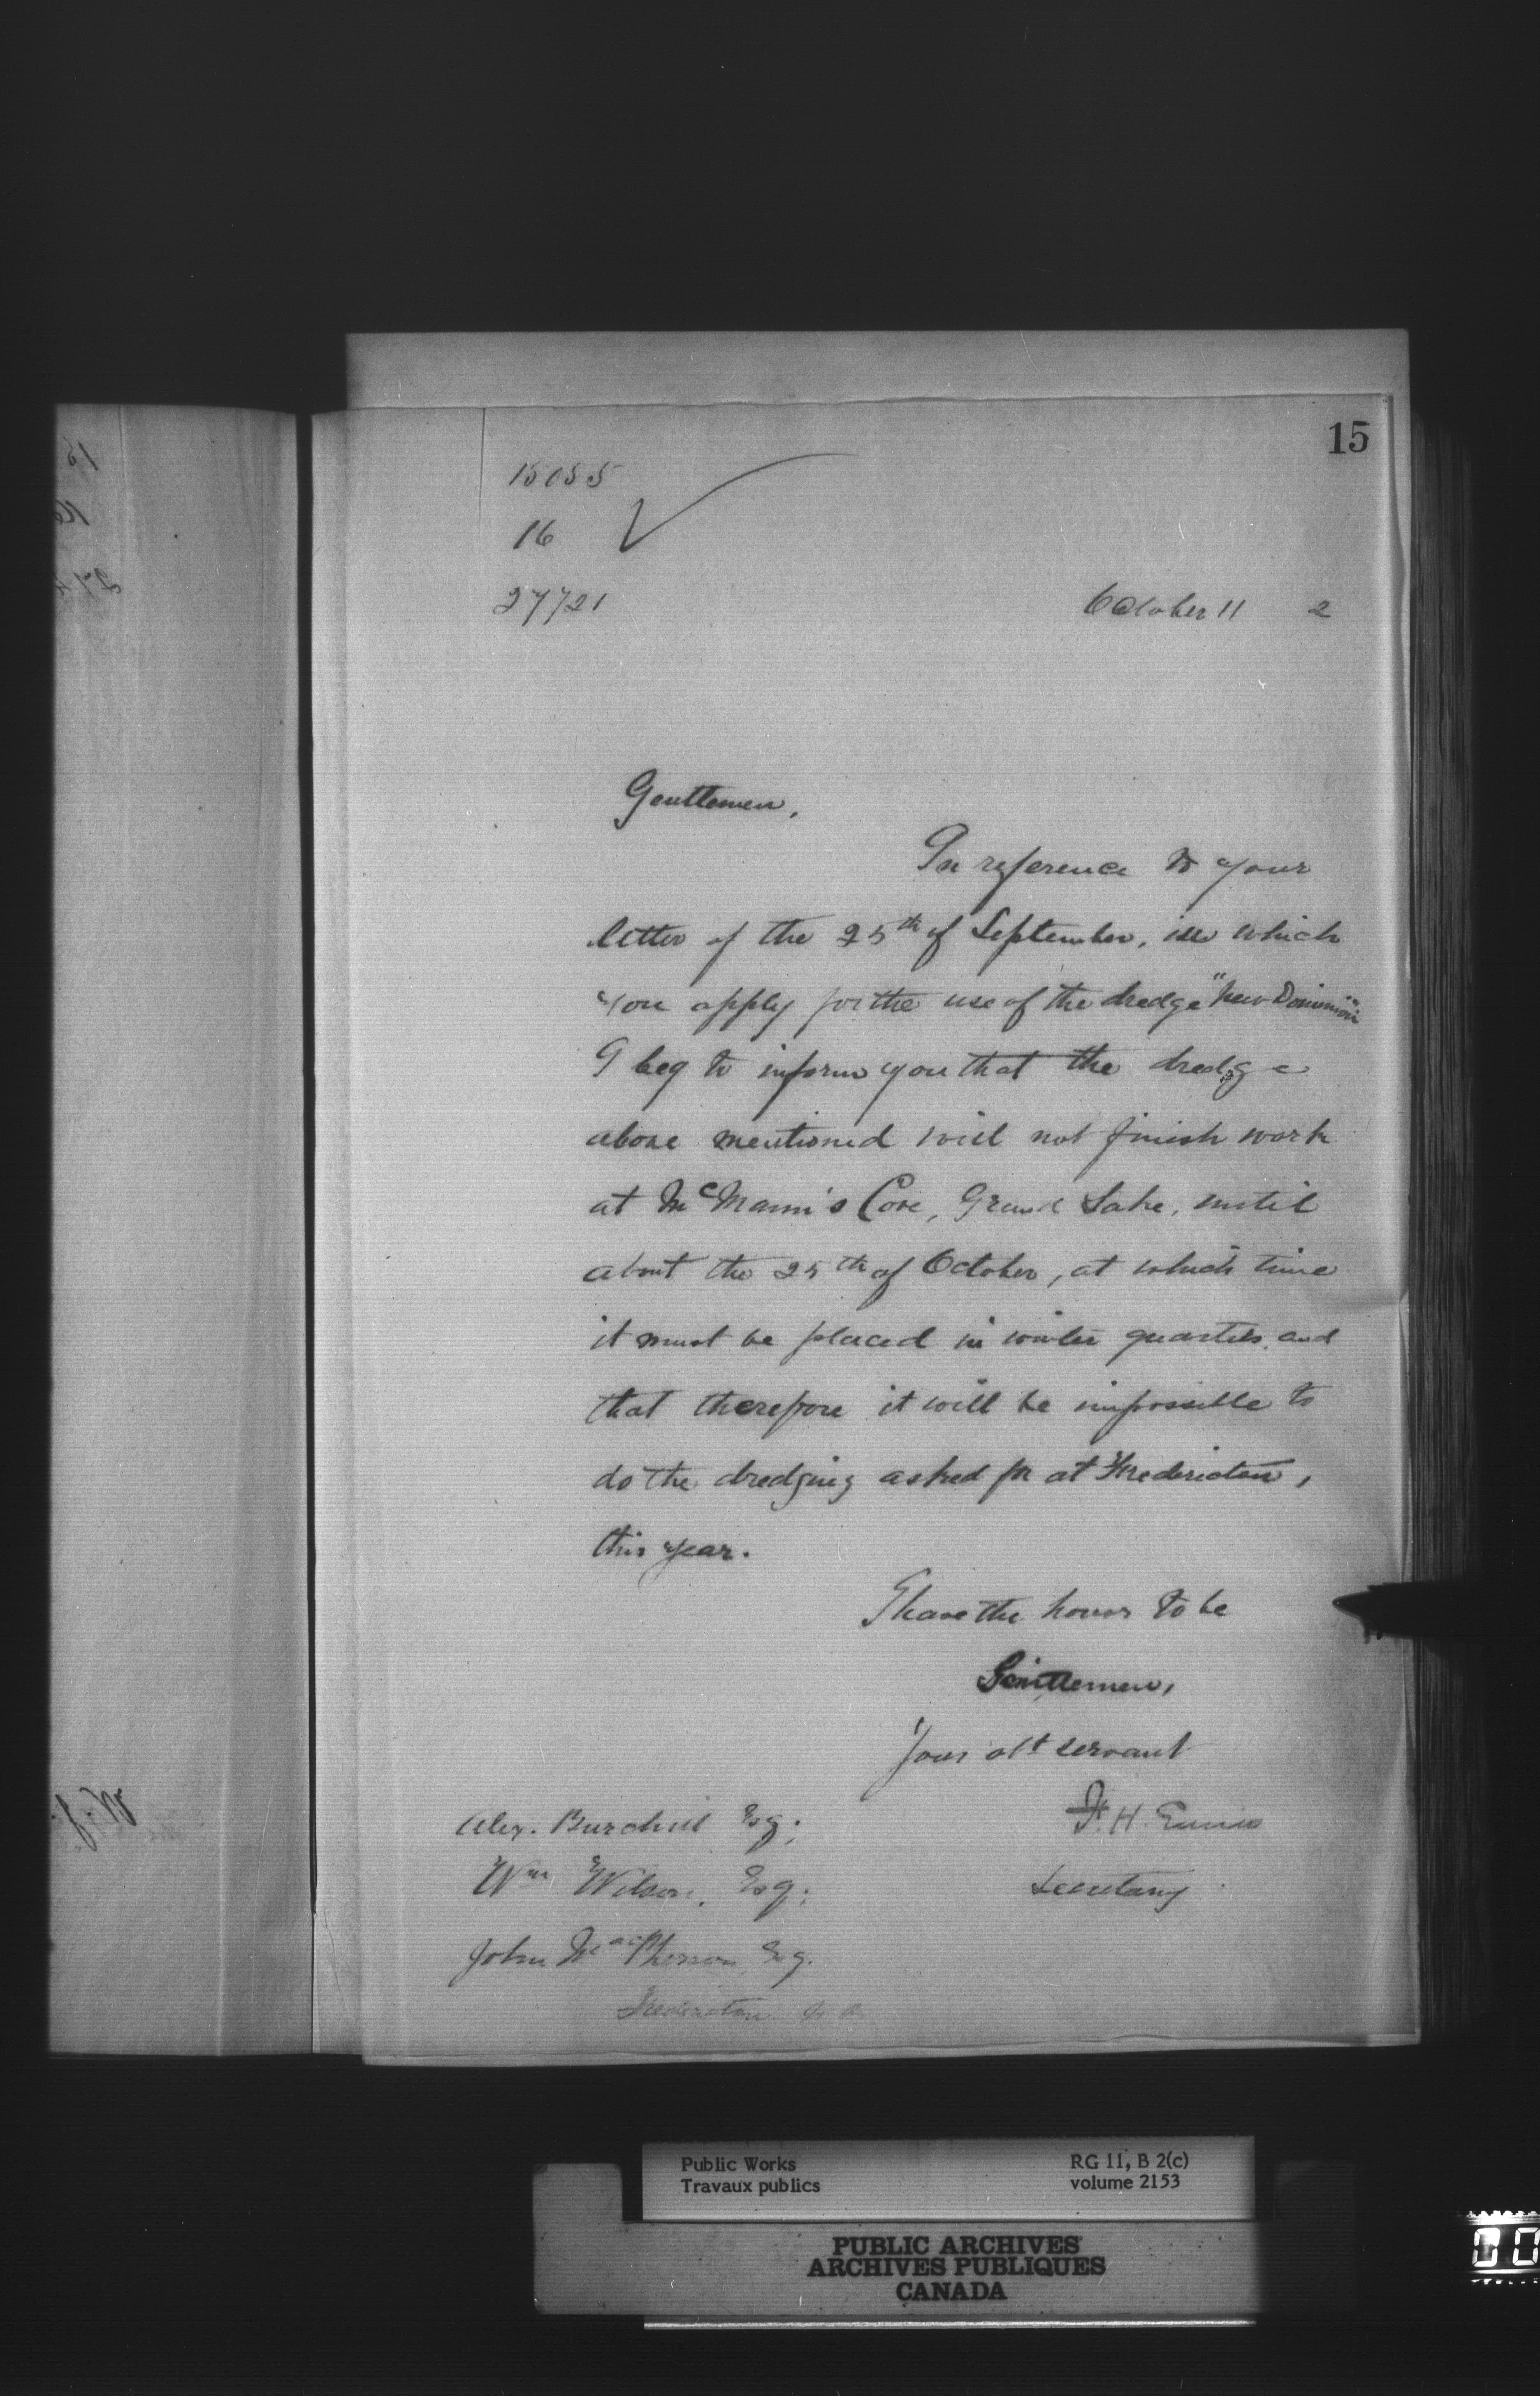 15
15055
16
27721
October 11 2
Gentlemen,
In reference to your
letter of the 25th of September, in which
you apply for the use of the dredge "New Dominion"
I beg to inform you that the dredge
above mentioned will not finish work
at McMann's Cove, Grand Lake, until
about the 25th of October, at which time
it must be placed in winter quarters, and
that therefore it will be impossible to
do the dredging asked for at Fredericton,
this year.
I have the honor to be
Gentlemen,
Your obt servant
F. H. Ennis
Secretary
Alex. Burchill Esq;
Wm Wilson, Esq;
John MacPherson Esq.
Fredericton N B
Public Works
Travaux publics
RG 11, B 2(c)
volume 2153
PUBLIC ARCHIVES
ARCHIVES PUBLIQUES
CANADA